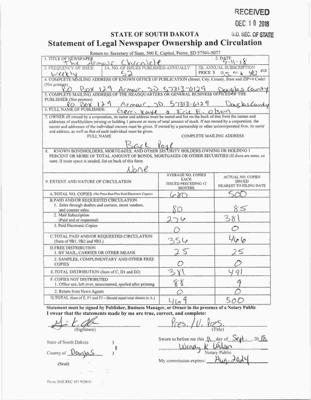 RECEIVED
DEC 10 2018
S.D. SEC. OF STATE
STATE OF SOUTH DAKOTA
Statement of Legal Newspaper Ownership and Circulation
Return to: Secretary of State, 500 E. Capitol, Pierre, SD 57501-5077
1. TITLE OF NEWSPAPER
The Armour Chronicle
2. DATE
3. FREQUENCY OF ISSUE
Weekly
3A. NO. OF ISSUES PUBLISHED ANNUALLY
52
3B. ANNUAL SUBSCRIPTION
PRICE $
4. COMPLETE MAILING ADDRESS OF KNOWN OFFICE OF PUBLICATION (Street, City, County, State and ZIP+4 Code)
(Not printer)
PO Box 129 Armour, SD 57313-0129 Douglas County
5. COMPLETE MAILING ADDRESS OF THE HEADQUARTERS OR GENERAL BUSINESS OFFICES OF THE
PUBLISHER (Not printer)
PO Box 129 Armour, SD 57313-0129 Douglas County
6. FULL NAME OF PUBLISHER:
7. OWNER (If owned by a corporation, its name and address must be stated and list on the back of this form the names and
addresses of stockholders owning or holding 1 percent or more of total amount of stock. If not owned by a corporation, the
name and addresses of the individual owners must be given. If owned by a partnership or other unincorporated firm, its name
and address, as well as that of each individual must be given.
FULL NAME
COMPLETE MAILING ADDRESS
Back Page
8. KNOWN BONDHOLDERS, MORTGAGEES, AND OTHER SECURITY HOLDERS OWNING OR HOLDING 1
PERCENT OR MORE OF TOTAL AMOUNT OF BONDS, MORTGAGES OR OTHER SECURITIES (If there are none, so
state. If more space is needed, list on back of this form.
None
9. EXTENT AND NATURE OF CIRCULATION
AVERAGE NO. COPIES
EACH
ISSUED PRECEDING 12
MONTHS
ACTUAL NO. COPIES
ISSUED
NEAREST TO FILING DATE
A. TOTAL NO. COPIES
500
B. PAID AND/OR REQUESTED CIRCULATION
1. Sales through dealers and carriers, street vendors,
and counter sales.
80
85
2. Mail Subscription
(Paid and or requested)
276
381
3. Paid Electronic Copies
0
0
C. TOTAL PAID AND/OR REQUESTED CIRCULATION
(Sum of 9B1, 9B2 and 9B3.)
356
466
D. FREE DISTRIBUTION
1. BY MAIL, CARRIER OR OTHER MEANS
25
25
2. SAMPLES, COMPLIMENTARY AND OTHER FREE
COPIES
0
0
E. TOTAL DISTRIBUTION (Sum of C, D1 and D2)
381
491
F. COPIES NOT DISTRIBUTED
1. Office use, left over, unaccounted, spoiled after printing
88
9
2. Return from News Agents
0
0
G. TOTAL
469
500
Statement must be signed by Publisher, Business Manager, or Owner in the presence of a Notary Public
I swear that the statements made by me are true, correct, and complete:
Pres. / V. Pres.
(Signature)
(Title)
State of South Dakota )
County of Douglas )
(Seal)
Sworn to before me this
day of Sept.
Notary Public
My commission expires: